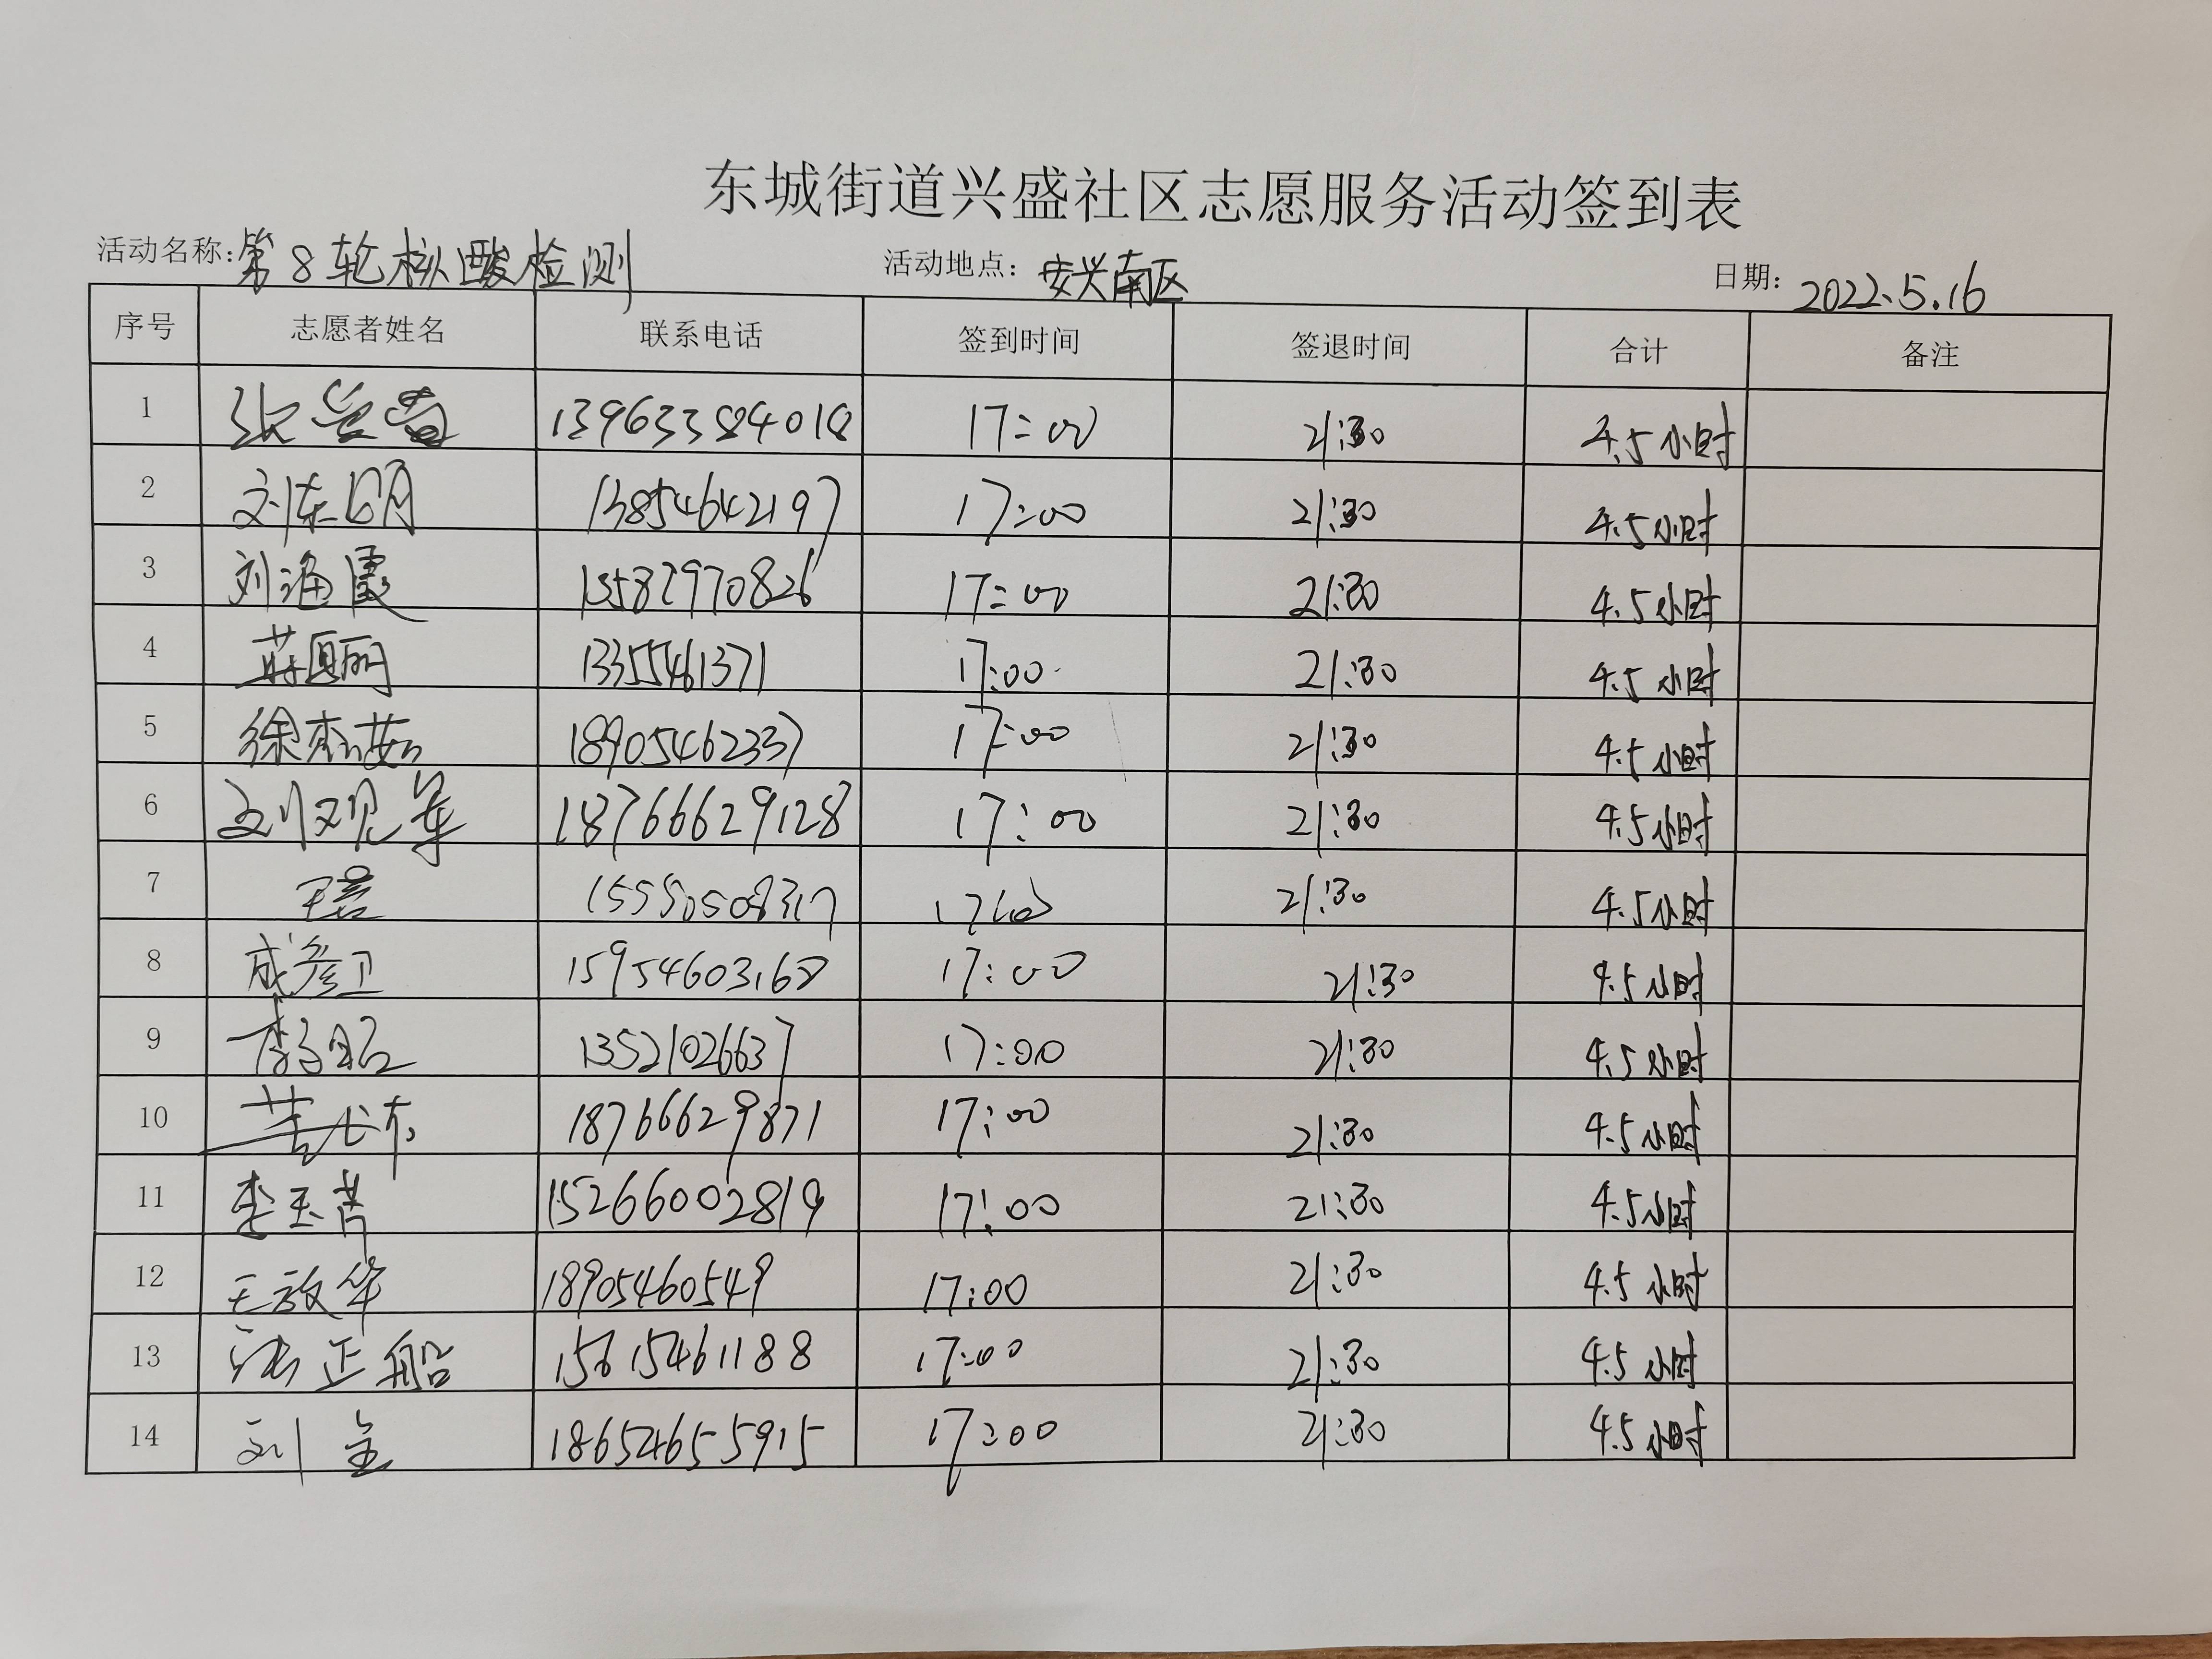 东城街道兴盛社区志愿服务活动签到表
活动名称:第8轮核酸检测 活动地点: 安兴南区 日期: 2022.5.16
序号 志愿者姓名 联系电话 签到时间 签退时间 合计 备注
1 张 13963384018 17:00 21:30 4.5小时
2 刘东明 13854642197 17:00 21:30 4.5小时
3 刘海霞 13582970826 17:00 21:30 4.5小时
4 蒋丽 1335461371 17:00 21:30 4.5小时
5 徐杰茹 18905462337 17:00 21:30 4.5小时
6 刘观军 18766629128 17:00 21:30 4.5小时
7 17:00 21:30 4.5小时
8 成彦卫 15954603168 17:00 21:30 4.5小时
9 13521026637 17:00 21:30 4.5小时
10 18766629871 17:00 21:30 4.5小时
11 李玉芹 15266002819 17:00 21:30 4.5小时
12 王放华 18905460549 17:00 21:30 4.5小时
13 正船 15615461188 17:00 21:30 4.5小时
14 刘全 18654655915 17:00 21:30 4.5小时